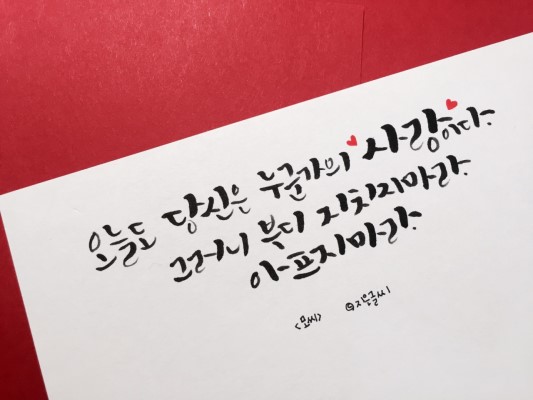 오늘도 당신은 누군가의 사랑이다.
그러니 부디 지치지마라.
아프지마라.
<모씨> @지은글씨